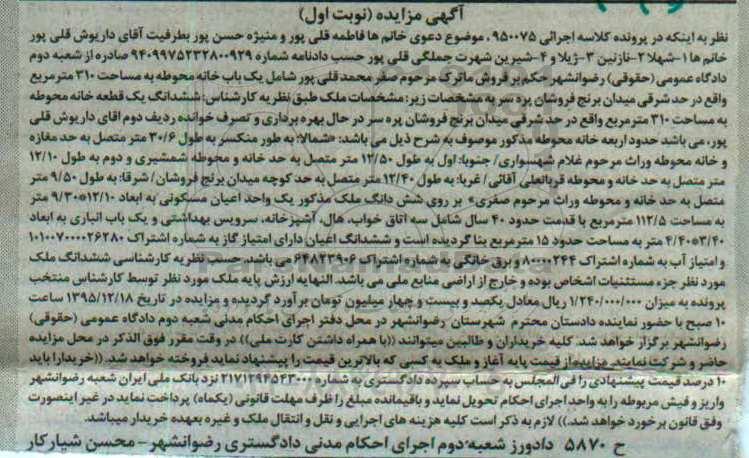 آگهی مزایده (نوبت اول)
نظر به اینکه در پرونده کلاسه اجرائی ۹۵۰۰۷۵، موضوع دعوی خانم ها فاطمه قلی پور و منیژه حسن پور بطرفیت آقای داریوش قلی پور
خانم ها ۱-شهلا ۲-نازنین ۳-ژیلا و ۴-شیرین شهرت جملگی قلی پور حسب دادنامه شماره ۹۴۰۹۹۷۵۲۳۲۸۰۰۹۲۹ صادره از شعبه دوم
دادگاه عمومی (حقوقی) رضوانشهر حکم بر فروش ماترک مرحوم صفر محمد قلی پور شامل یک باب خانه محوطه به مساحت ۳۱۰ مترمربع
واقع در حد شرقی میدان برنج فروشان پره سر به مشخصات زیر: مشخصات ملک طبق نظریه کارشناس: ششدانگ یک قطعه خانه محوطه
به مساحت ۳۱۰ مترمربع واقع در حد شرقی میدان برنج فروشان پره سر در حال بهره برداری و تصرف خوانده ردیف دوم اقای داریوش قلی
پور، می باشد حدود اربعه خانه محوطه مذکور موصوف به شرح ذیل می باشد: «شمالا: به طور منکسر به طول ۳۰/۶ متر متصل به حد مغازه
و خانه محوطه وراث مرحوم غلام شهسواری/ جنوبا: اول به طول ۱۲/۵۰ متر متصل به حد خانه و محوطه شمشیری و دوم به طول ۱۲/۱۰
متر متصل به حد خانه و محوطه قربانعلی آقائی/ غربا: به طول ۱۲/۴۰ متر متصل به حد کوچه میدان برنج فروشان/ شرقا: به طول ۹/۵۰ متر
متصل به حد خانه و محوطه وراث مرحوم صفری» بر روی شش دانگ ملک مذکور یک واحد اعیان مسکونی به ابعاد ۱۲/۱۰*۹/۳۰ متر
به مساحت ۱۱۲/۵ مترمربع با قدمت حدود ۴۰ سال شامل سه اتاق خواب، هال، آشپزخانه، سرویس بهداشتی و یک باب انباری به ابعاد
۳/۴۰*۴/۴۰ متر به مساحت حدود ۱۵ مترمربع بنا گردیده است و ششدانگ اعیان دارای امتیاز گاز به شماره اشتراک ۱۰۱۰۰۷۰۰۰۰۲۶۲۸۰
و امتیاز آب به شماره اشتراک ۸۰۰۰۰۲۴۴ و برق خانگی به شماره اشتراک ۶۴۸۲۳۹۰۶ می باشد. حسب نظریه کارشناسی ششدانگ ملک
مورد نظر جزء مستثنیات اشخاص بوده و خارج از اراضی منابع ملی می باشد. النهایه ارزش پایه ملک مورد نظر توسط کارشناس منتخب
پرونده به میزان ۱/۲۴۰/۰۰۰/۰۰۰ ریال معادل یکصد و بیست و چهار میلیون تومان برآورد گردیده و مزایده در تاریخ ۱۳۹۵/۱۲/۱۸ ساعت
۱۰ صبح با حضور نماینده دادستان محترم شهرستان رضوانشهر در محل دفتر اجرای احکام مدنی شعبه دوم دادگاه عمومی (حقوقی)
رضوانشهر برگزار خواهد شد. کلیه خریداران و طالبین میتوانند ((با همراه داشتن کارت ملی)) در وقت مقرر فوق الذکر در محل مزایده
حاضر و شرکت نمایند. مزایده از قیمت پایه آغاز و ملک به کسی که بالاترین قیمت را پیشنهاد نماید فروخته خواهد شد. ((خریدارا باید
۱۰ درصد قیمت پیشنهادی را فی المجلس به حساب سپرده دادگستری به شماره ۲۱۷۱۲۹۴۵۴۳۰۰۰ نزد بانک ملی ایران شعبه رضوانشهر
واریز و فیش مربوطه را به واحد اجرای احکام تحویل نماید و باقیمانده مبلغ را ظرف مهلت قانونی (یکماه) پرداخت نماید در غیر اینصورت
وفق قانون برخورد خواهد شد.)) لازم به ذکر است کلیه هزینه های اجرایی و نقل و انتقال ملک و غیره بعهده خریدار میباشد.
ح ۵۸۷۰ دادورز شعبه دوم اجرای احکام مدنی دادگستری رضوانشهر- محسن شیارکار